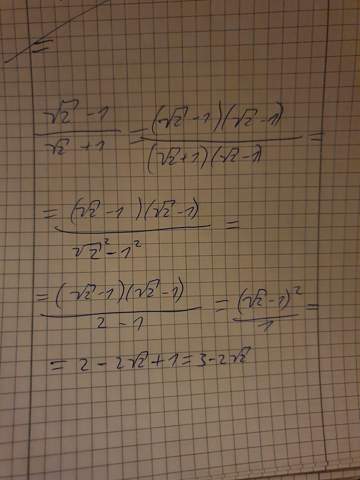 =
(√2 - 1)/(√2 + 1) = ((√2 - 1)(√2 - 1))/((√2 + 1)(√2 - 1)) =
= ((√2 - 1)(√2 - 1))/(√2² - 1²) =
= ((√2 - 1)(√2 - 1))/(2 - 1) = (√2 - 1)²/1 =
= 2 - 2√2 + 1 = 3 - 2√2